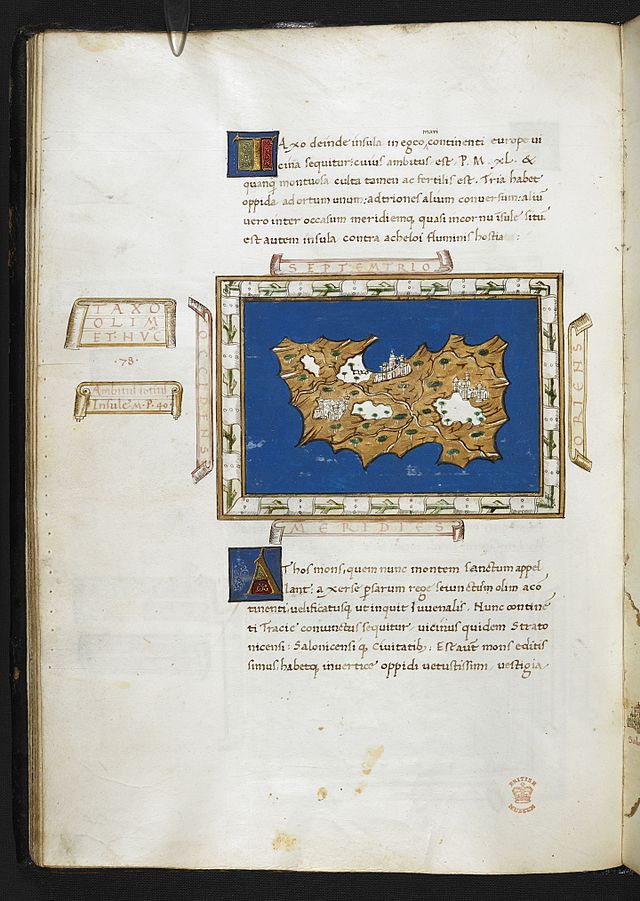 TAxo deinde insula in egeo mari continenti europe ui
cina sequitur: cuius ambitus est P. M. XL. &
quanq̄ montuosa culta tamen ac fertilis est. Tria habet
oppida ad ortum unum: ad triones alium conuersum: aliū
uero inter occasum meridiemq̨ quasi in cornu īsule sitū
est autem insula contra acheloi fluminis hostia :
SEPTEMTRIO
TAXO
OLIM
ET HVC
·78·
Ambitus totius
Insule M. P. 40
OCCIDENS
ORIENS
MERIDIES
AThos mons, quem nunc montem sanctum appel
lant: a xerse psarum rege seiunctum olim a cō
tinenti, uelificatusq̨ ut inquit Iuuenalis. Nunc continē
ti Tracie coniunctus sequitur uicinus quidem Strato
nicensi: Salonicensi q̨ Ciuitatib;. Est aūt mons editis
simus, habetq̨ in uertice oppidi uetustissimi uestigia
BRITISH
MUSEUM